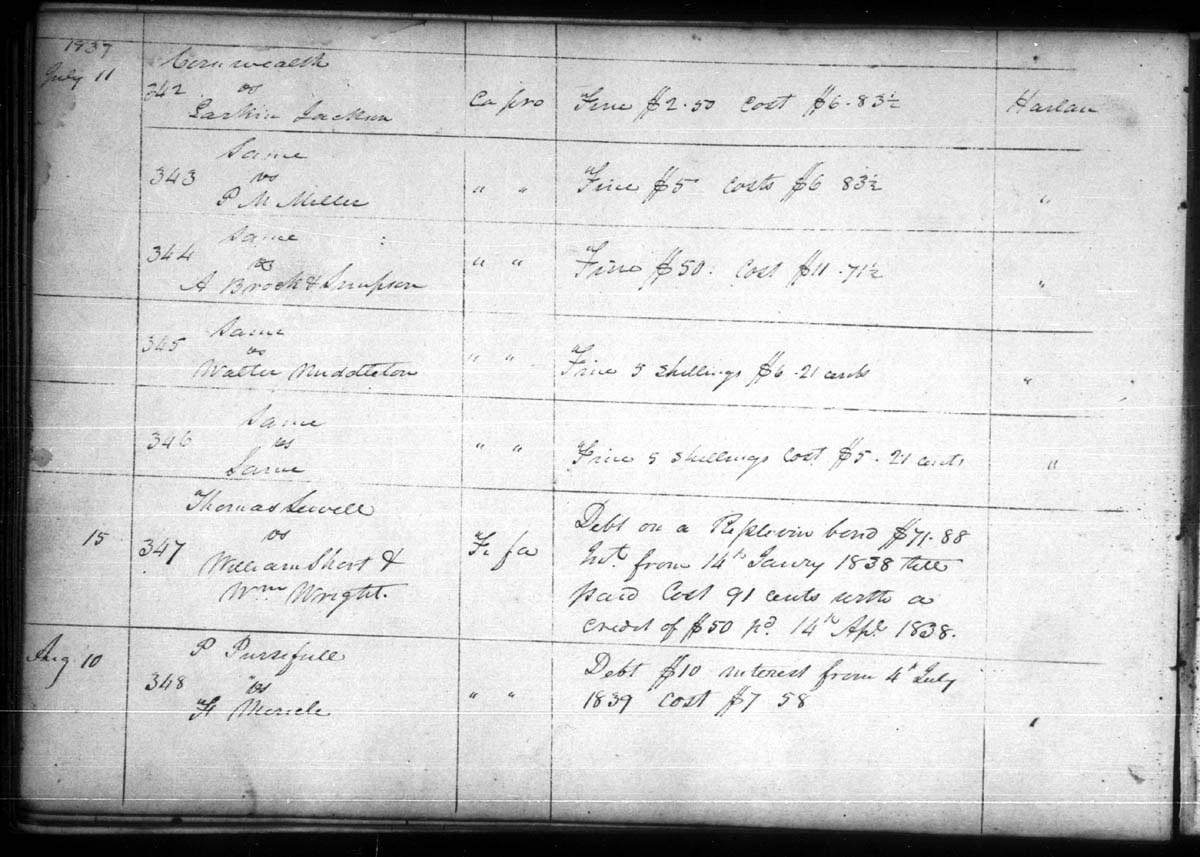 1839
July 11
Comwealth
342 vs
Larkin Jackson
Ca pro
Fine $2.50 Cost $6.83½
Harlan
Same
343 vs
P M Miller
" "
Fine $5 Costs $6 83½
"
Same
344 vs
A Brock & Simpson
" "
Fine $50. Cost $11.71½
"
Same
345 vs
Walter Middleton
" "
Fine 5 shillings $6.21 cents
"
Same
346 vs
Same
" "
Fine 5 shillings Cost $5.21 cents
"
15
Thomas Sewell
347 vs
William Short &
Wm Wright.
Fi fa
Debt on a Replevin bond $71.88
Int. from 14th Janry 1838 till
paid Cost 91 cents with a
credit of $50 pd. 14th Apl. 1838.
Aug 10
P Pursefull
348 vs
H
" "
Debt $10 interest from 4th July
1839 cost $7 58
"